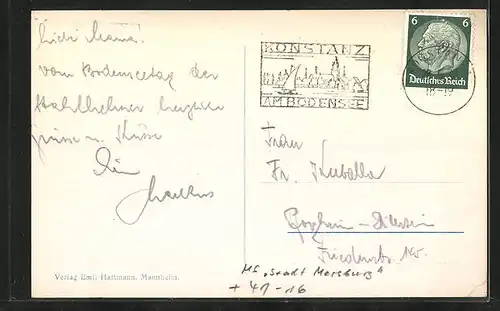 Liebe Mama!
vom Bodenseetag der
Stahlhelmer herzliche
Grüsse u. Küsse
Dein
KONSTANZ
AM BODENSEE
6 6
Deutsches Reich
18-19
Frau
Fr. Kuballa
Friedenstr.
Verlag Emil Hartmann, Mannheim.
MS "Stadt Mersburg"
+ 41-16